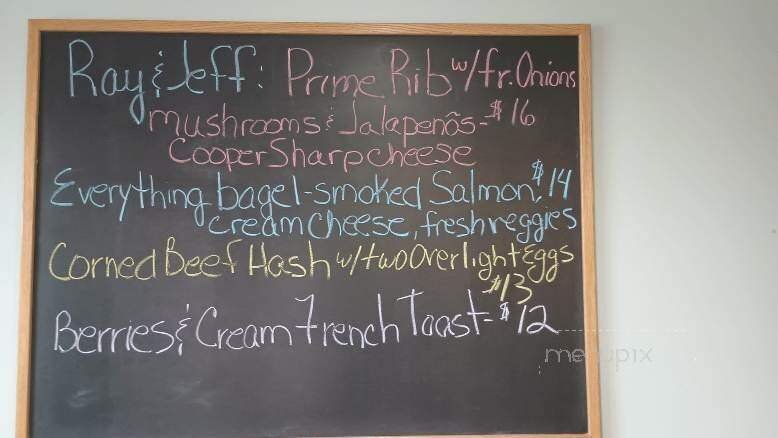 Ray & Jeff: Prime Rib w/fr. Onions
mushrooms & Jalapenõs- $16
Cooper Sharp cheese
Everything bagel-smoked Salmon, $14
cream cheese, fresh veggies
Corned Beef Hash w/two Overlight Eggs
$13
Berries & Cream French Toast- $12
menupix